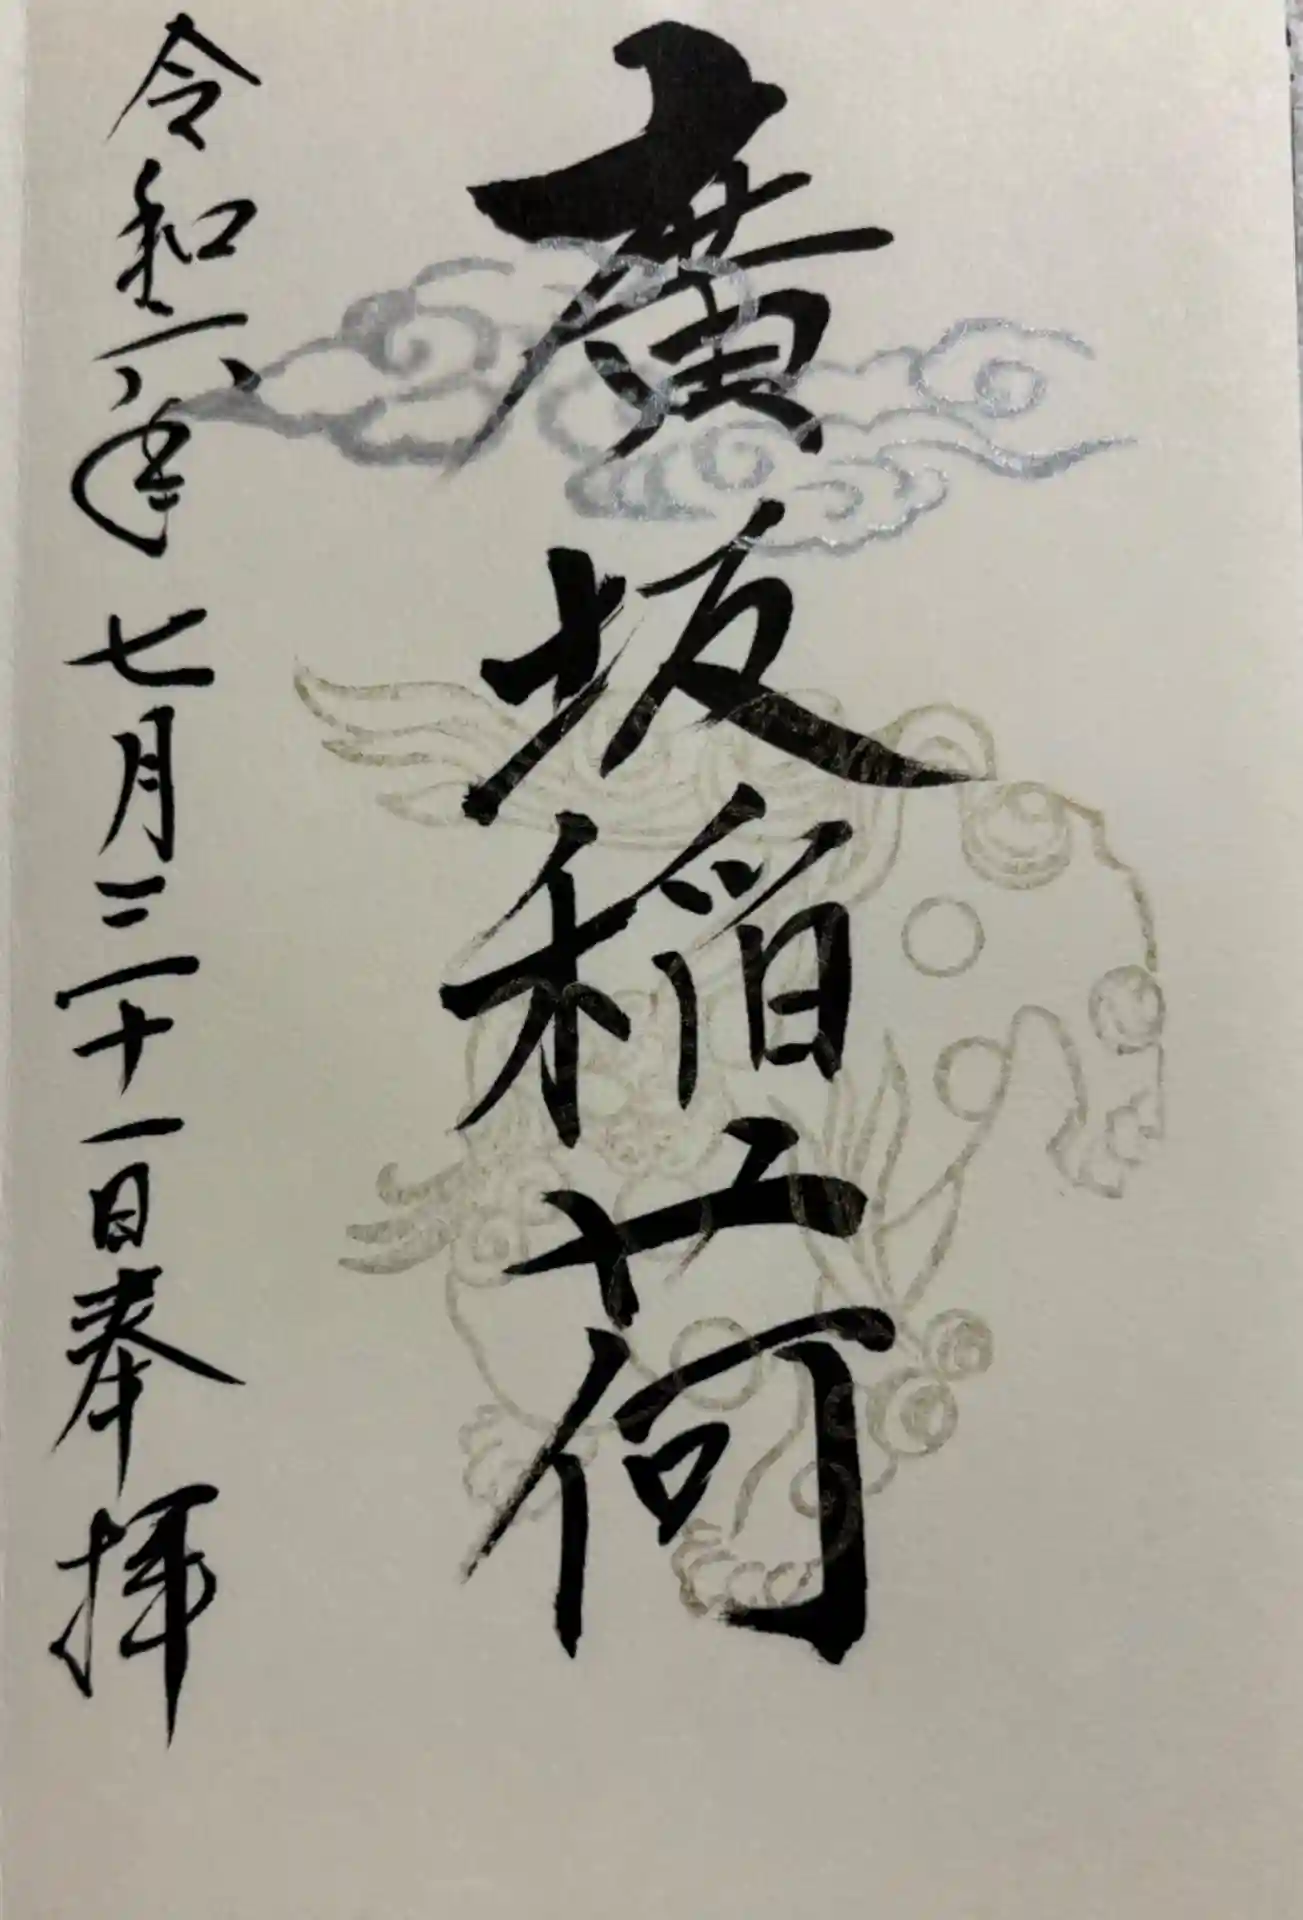 廣坂稲荷
令和六年七月三十一日奉拝